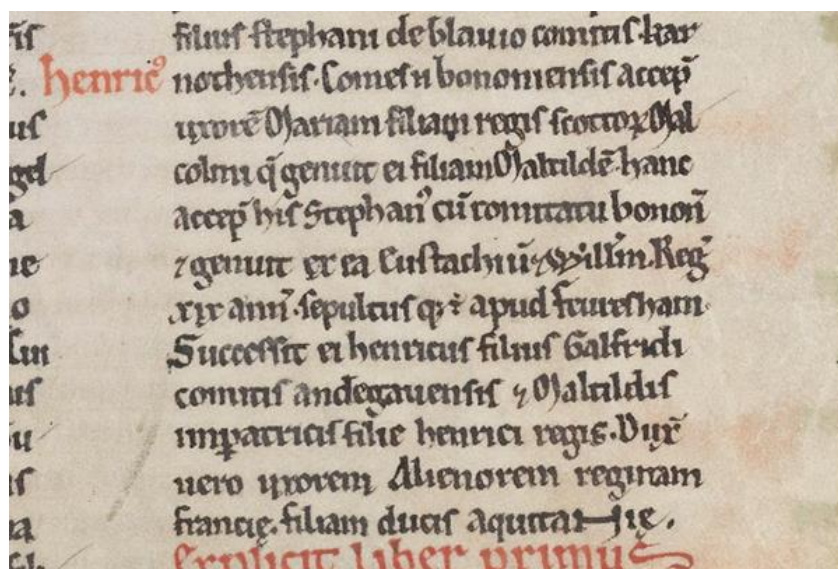 filius stephani de blauio comitis kar
henric⁹ nothensis. Comes u bononiensis accep̄
uxorē Mariam filiam regis scottoꝝ Mal
colmi q̄ genuit ei filiam Matildē hanc
accep̄ his Stephan⁹ cū comitatu bonoñ
⁊ genuit ex ea Eustachiū ⁊ Willm̄. Reḡ
xix annˀ. sepultus apud feuresham.
Successit ei henricus filius Galfridi
comitis andegauensis ⁊ Matildis
imꝑatricis filie henrici regis. Dux̄
uero uxorem Alienorem reginam
francię. filiam ducis aquitanię.
Explicit liber primus